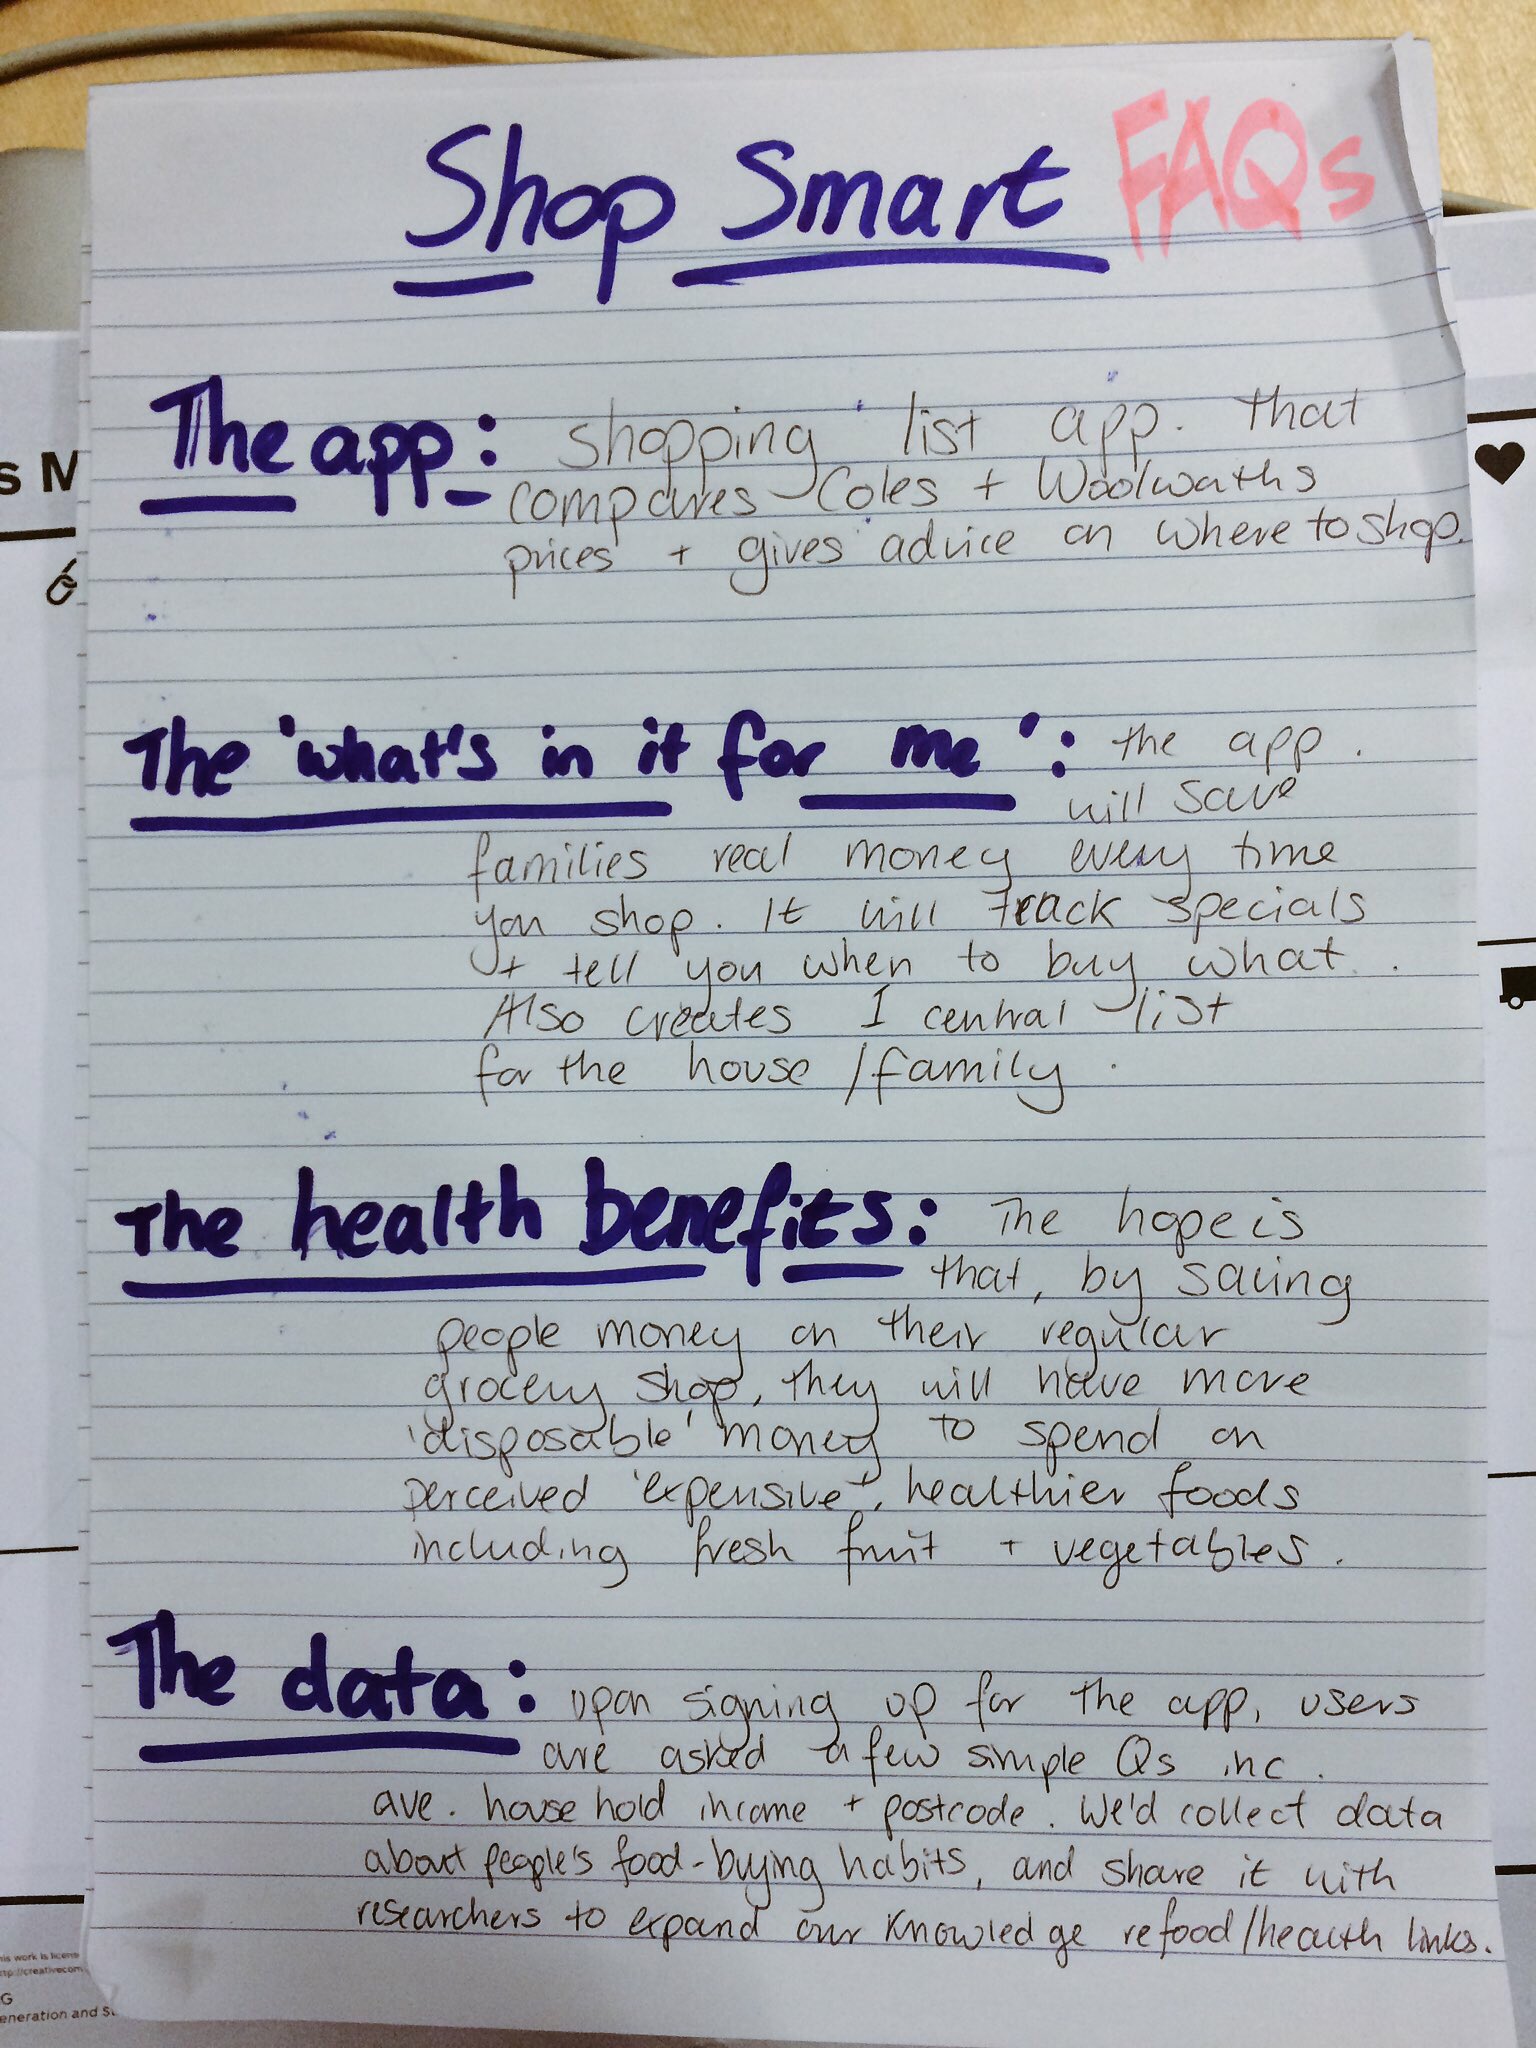 Shop Smart FAQs
The app: shopping list app. that
compares Coles + Woolwaths
prices + gives advice on where to shop.
The 'what's in it for me': the app.
will save
families real money every time
you shop. It will track specials
+ tell you when to buy what.
Also creates 1 central list
for the house / family.
The health benefits: The hope is
that, by saving
people money on their regular
grocery shop, they will have more
'disposable' money to spend on
perceived 'expensive', healthier foods
including fresh fruit + vegetables.
The data: upon signing up for the app, users
are asked a few simple Qs inc.
ave. household income + postcode. We'd collect data
about people's food-buying habits, and share it with
researchers to expand our knowledge re food/health links.
s M
his work is licens
ttp://creativecom
G
eneration and St